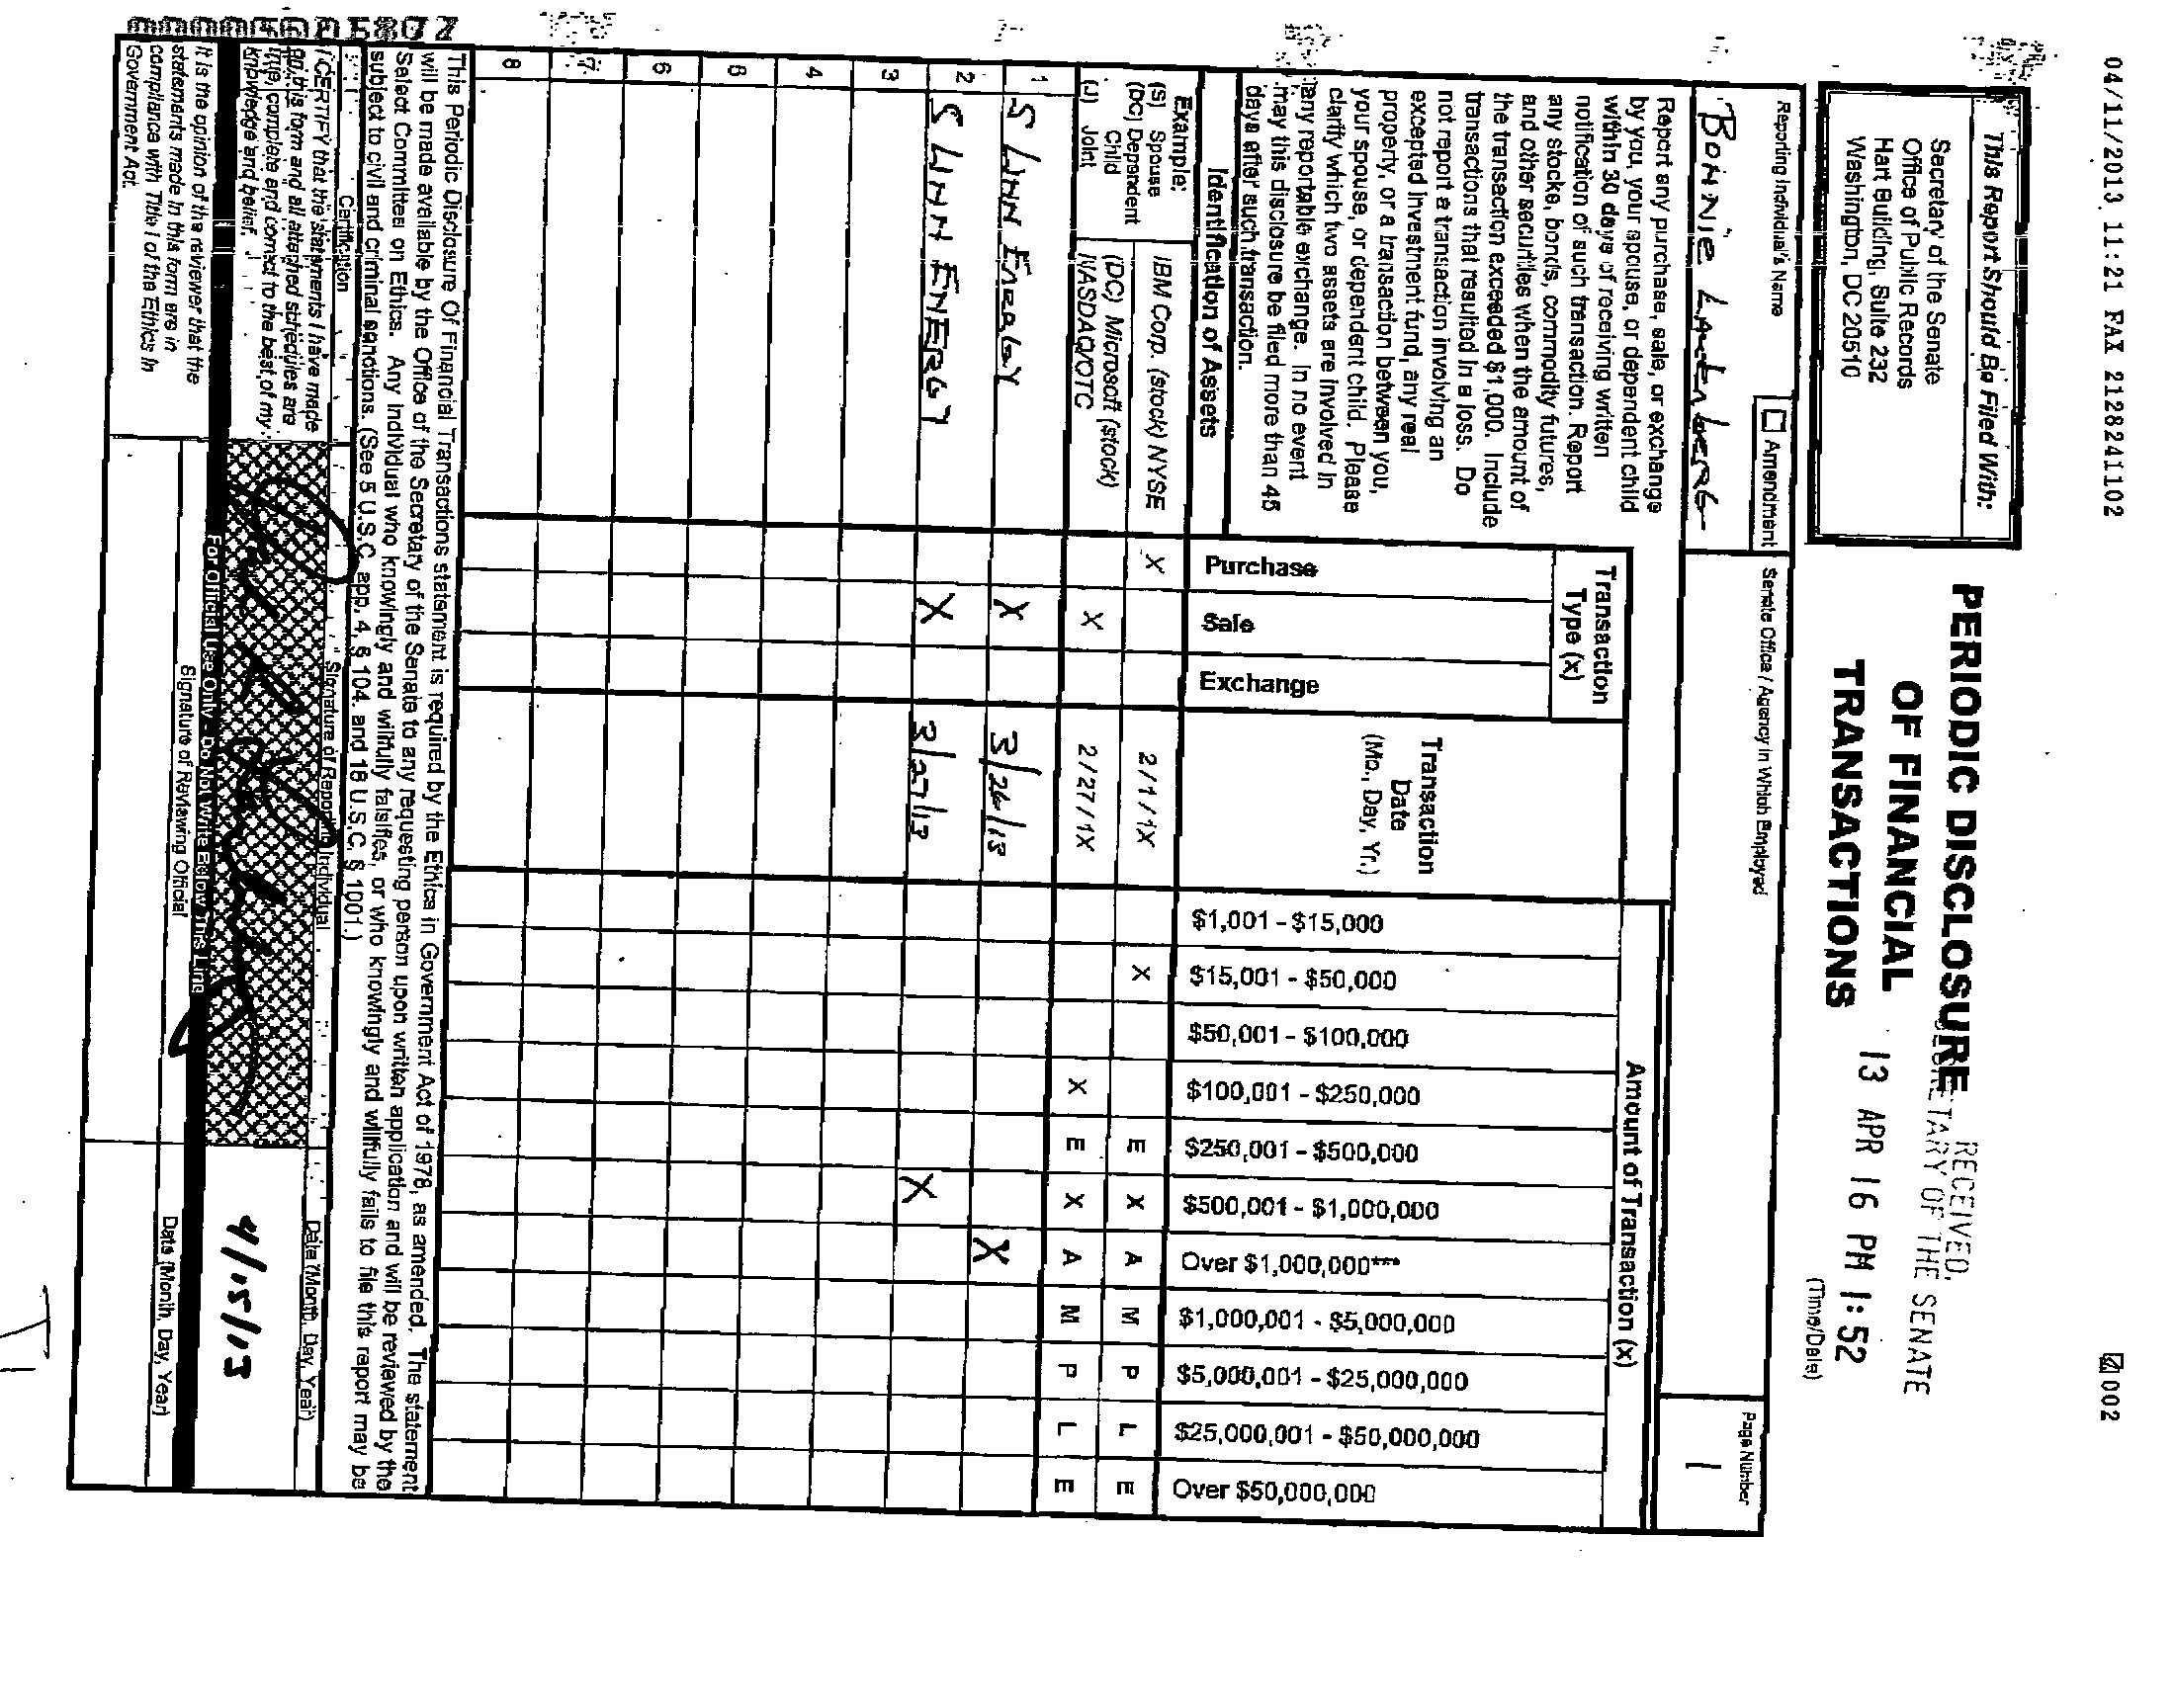 04/11/2013 11:21 FAX 2128241102
002
This Report Should Be Filed With:
Secretary of the Senate
Office of Public Records
Hart Building, Suite 232
Washington, DC 20510
PERIODIC DISCLOSURE
OF FINANCIAL
TRANSACTIONS
RECEIVED
SECRETARY OF THE SENATE
13 APR 16 PM 1:52
(Time/Date)
Reporting Individual's Name
Amendment
Senate Office / Agency in Which Employed
Page Number
BONNIE
1
Report any purchase, sale, or exchange
by you, your spouse, or dependent child
within 30 days of receiving written
notification of such transaction. Report
any stocks, bonds, commodity futures,
and other securities when the amount of
the transaction exceeded $1,000. Include
transactions that resulted in a loss. Do
not report a transaction involving an
excepted investment fund, any real
property, or a transaction between you,
your spouse, or dependent child. Please
clarify which two assets are involved in
any reportable exchange. In no event
may this disclosure be filed more than 45
days after such transaction.
Identification of Assets
Transaction
Type (x)
Purchase
Sale
Exchange
Transaction
Date
(Mo., Day, Yr.)
Amount of Transaction (x)
$1,001 - $15,000
$15,001 - $50,000
$50,001 - $100,000
$100,001 - $250,000
$250,001 - $500,000
$500,001 - $1,000,000
Over $1,000,000***
$1,000,001 - $5,000,000
$5,000,001 - $25,000,000
$25,000,001 - $50,000,000
Over $50,000,000
Example:
(S) Spouse
(DC) Dependent
Child
(J) Joint
IBM Corp. (stock) NYSE X 2/1/1X X E X A M P L E
(DC) Microsoft (stock)
NASDAQ/OTC X 2/27/1X X E X A M P L E
1 S LINN Energy X 3/26/13 X
2 S LINN ENERGY X 3/27/13 X
3
4
5
6
7
8
This Periodic Disclosure Of Financial Transactions statement is required by the Ethics in Government Act of 1978, as amended. The statement
will be made available by the Office of the Secretary of the Senate to any requesting person upon written application and will be reviewed by the
Select Committee on Ethics. Any individual who knowingly and willfully falsifies, or who knowingly and willfully fails to file this report may be
subject to civil and criminal sanctions. (See 5 U.S.C. app. 4, § 104. and 18 U.S.C. § 1001.)
Certification
Signature of Reporting Individual
Date (Month, Day, Year)
I CERTIFY that the statements I have made
on this form and all attached schedules are
true, complete and correct to the best of my
knowledge and belief.
4/15/13
For Official Use Only - Do Not Write Below This Line
It is the opinion of the reviewer that the
statements made in this form are in
compliance with Title I of the Ethics in
Government Act.
Signature of Reviewing Official
Date (Month, Day, Year)